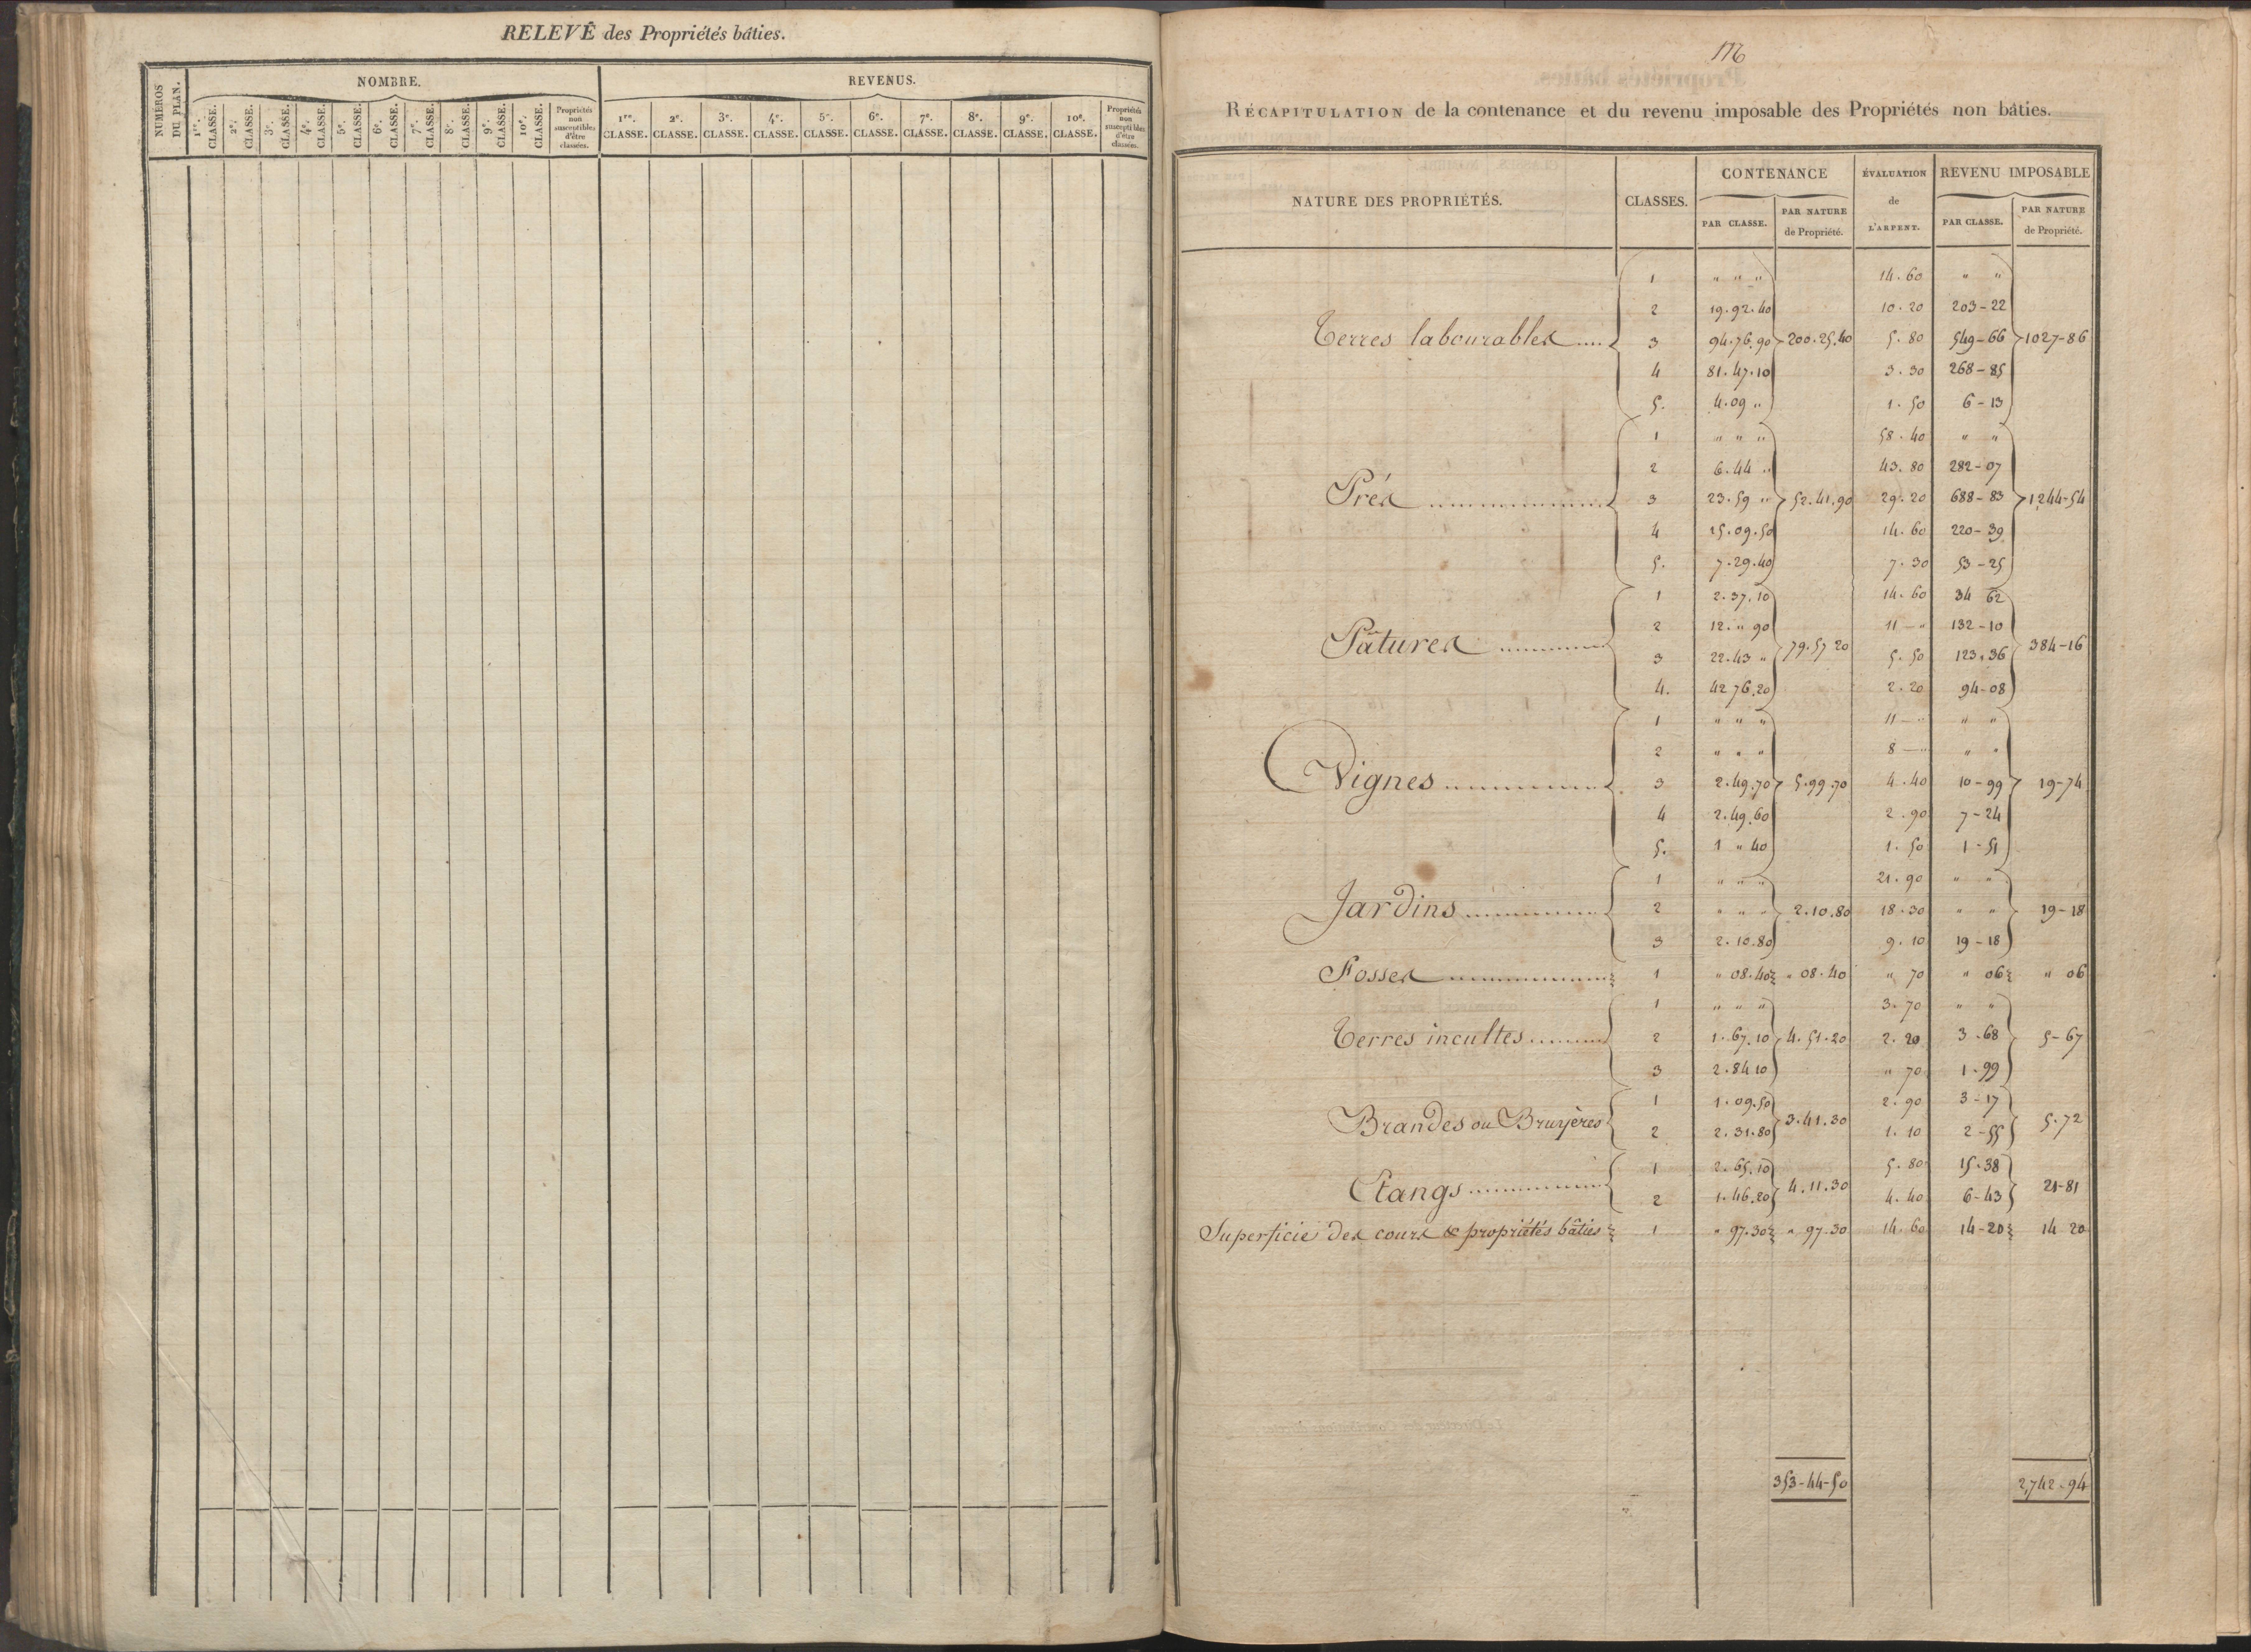 RELEVÉ des Propriétés bâties.
NUMÉROS DU PLAN.
NOMBRE.
REVENUS.
1re. CLASSE. 2e. CLASSE. 3e. CLASSE. 4e. CLASSE. 5e. CLASSE. 6e. CLASSE. 7e. CLASSE. 8e. CLASSE. 9e. CLASSE. 10e. CLASSE. Propriétés non susceptibles d'être classées.
1re. CLASSE. 2e. CLASSE. 3e. CLASSE. 4e. CLASSE. 5e. CLASSE. 6e. CLASSE. 7e. CLASSE. 8e. CLASSE. 9e. CLASSE. 10e. CLASSE. Propriétés non susceptibles d'être classées.
RÉCAPITULATION de la contenance et du revenu imposable des Propriétés non bâties.
NATURE DES PROPRIÉTÉS. CLASSES. CONTENANCE ÉVALUATION de L'ARPENT. REVENU IMPOSABLE
PAR CLASSE. PAR NATURE de Propriété. PAR CLASSE. PAR NATURE de Propriété.
1 " " " 14.60 " "
2 19.92.40 10.20 203-22
Terres labourables .... 3 94.76.90 200.25.40 5.80 549-66 1027-86
4 81.47.10 3.30 268-85
5. 4.09 " 1.50 6-13
1 " " " 58.40 " "
2 6.44 " 43.80 282-07
Prés .............. 3 23.59 " 52.41.90 29.20 688-83 1244-54
4 15.09.50 14.60 220-39
5. 7.29.40 7.30 53-25
1 2.37.10 14.60 34 62
2 12. " 90 11 — " 132-10
Pâtures ........ 79.57 20 384-16
3 22.43 " 5.50 123.36
4. 42 76.20 2.20 94-08
1 " " " 11 — " " "
2 " " " 8 — " " "
Vignes ............ 3 2.49.70 5.99.70 4.40 10-99 19-74
4 2.49.60 2.90 7-24
5. 1 " 40 1.50 1-51
1 " " " 21.90 " "
Jardins .......... 2 " " " 2.10.80 18.30 " " 19-18
3 2.10.80 9.10 19-18
Fosses ............ 1 " 08.40 " 08.40 " 70 " 06 " 06
1 " " " 3.70 " "
Terres incultes ....... 2 1.67.10 4.51.20 2.20 3.68 5-67
3 2.84 10 " 70 1.99
1 1.09.50 2.90 3-17
Brandes ou Bruyères 3.41.30 5.72
2 2.31.80 1.10 2-55
1 2.65.10 5.80 15.38
Etangs ............ 4.11.30 21-81
2 1.46.20 4.40 6-43
Superficie des cours & propriétés bâties 1 " 97.30 " 97.30 14.60 14-20 14 20
353-44-50 2,742.94